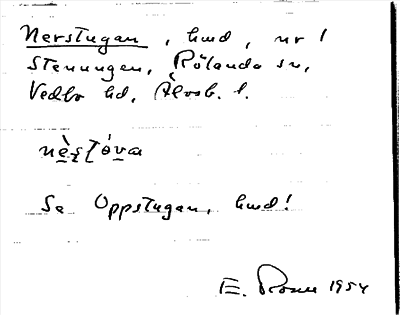 Nerstugan, hmd, nr 1
Stenungen, Rölanda sn,
Vedbo hd, Älvsb. l.
nè̱stóva
Se Oppstugan, hmd!
E. Rosell 1954